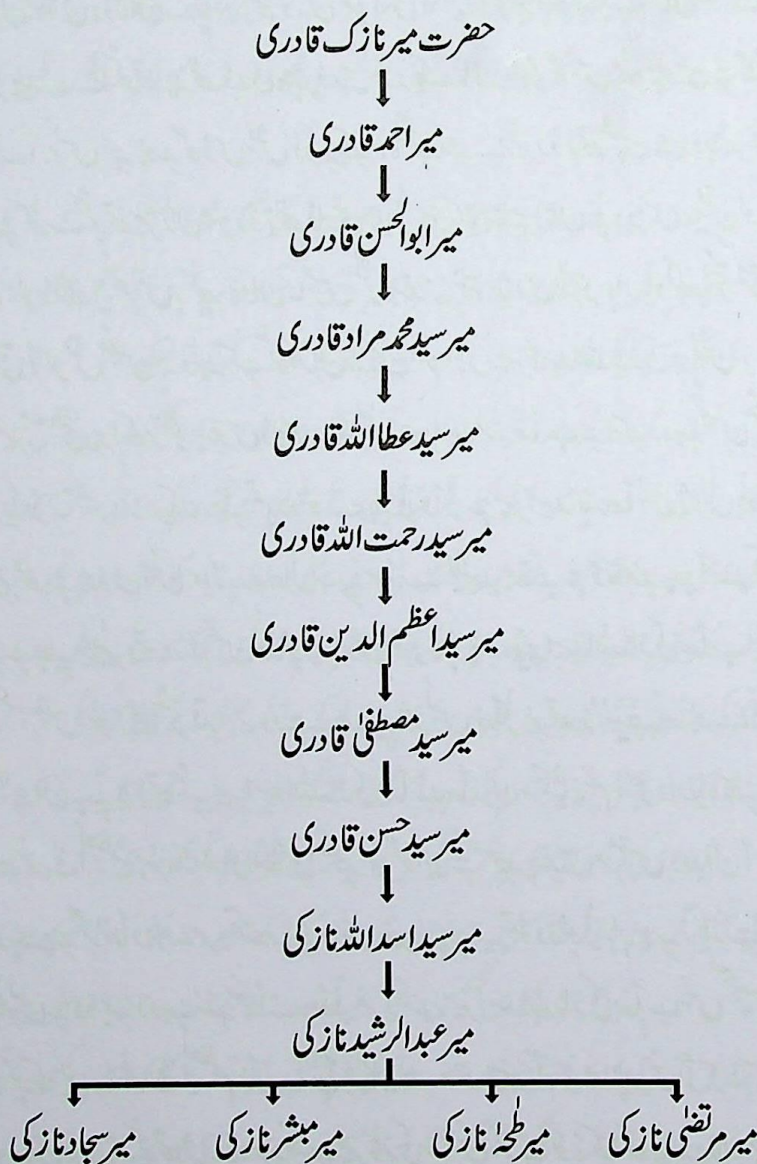 حضرت میر نازک قادری
میر احمد قادری
میر ابوالحسن قادری
میر سید محمد مراد قادری
میر سید عطا اللہ قادری
میر سید رحمت اللہ قادری
میر سید اعظم الدین قادری
میر سید مصطفیٰ قادری
میر سید حسن قادری
میر سید اسد اللہ نازکی
میر عبدالرشید نازکی
میر مرتضیٰ نازکی میر طٰحہٰ نازکی میر مبشر نازکی میر سجاد نازکی